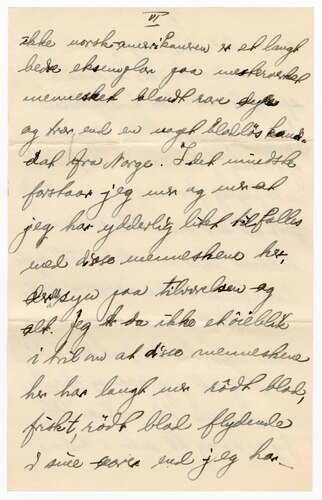 VI
ikke norsk-amerikaneren er et langt
bedre eksemplar paa mesterverket
mennesket blandt rare dyr
og trær, end en noget blodløs kandi-
dat fra Norge. I det mindste
forstaar jeg mer og mer at
jeg har ydderlig litet tilfælles
med disse menneskene her,
syn paa tilværelsen og
alt. Jeg da ikke et øieblik
i tvil om at disse menneskene
her har langt mer rødt blod,
friskt, rødt blod flydende
i sine aarer end jeg har